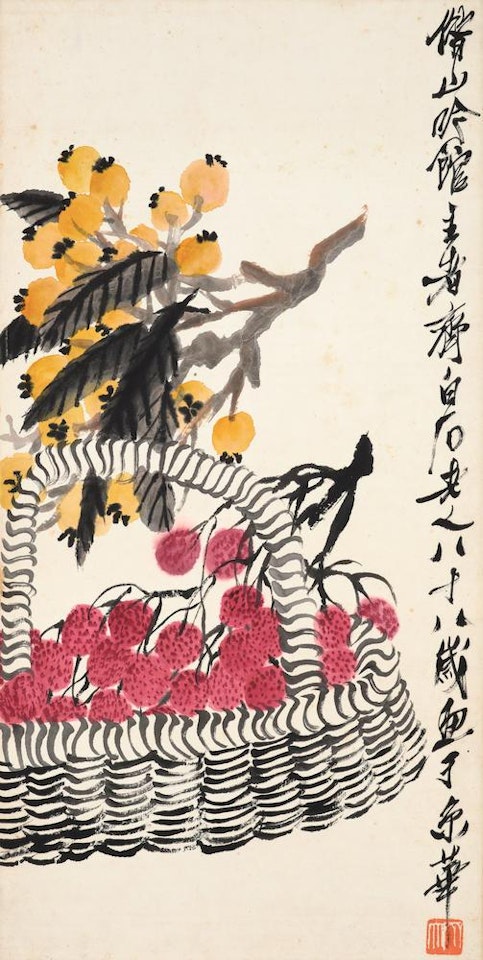 借山吟館主者齊白石老人八十八歲画于京華